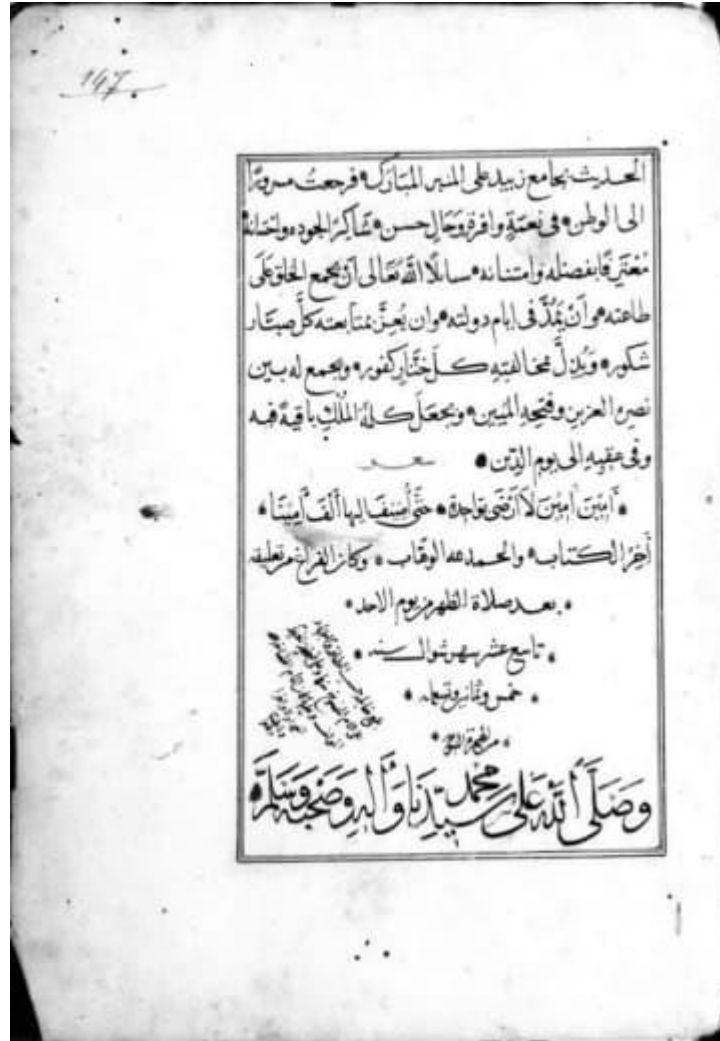 147
الحديث بجامع زبيد على المنبر المبارك فرجعت مسرورًا
الى الوطن في نعمة وافرة وحال حسن شاكرًا لجوده واحسانه
مُعْتَرِفًا بفضله وامتنانه سائلًا الله تعالى أن يجمع الخلق على
طاعته وأن يمدّ في ايام دولته وان يُعِزّ بمتابعته كل صبّار
شكور ويُذِلَّ بمخالفته كل ختّار كفور ويجمع له بين
نصره العزيز وفتحه المبين ويجعل كلمة الملك باقية فيه
وفي عقبه الى يوم الدين
آمين آمين لا أرضى بواحدة حتى أضيف اليها ألف آمينا
آخر الكتاب والحمد لله الوهاب وكان الفراغ من تعليقه
بعد صلاة الظهر من يوم الاحد
تاسع عشر شهر شوال سنة
خمس وثمانين وتسعمائة
من الهجرة النبوية
وصلى الله على سيدنا محمد وآله وصحبه وسلم